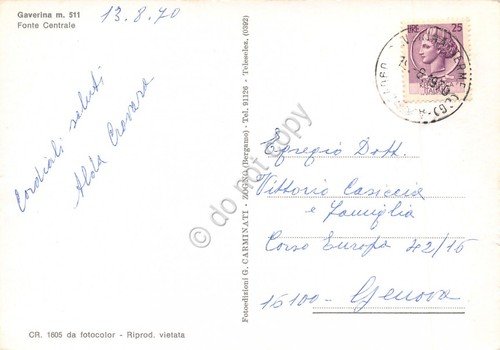 Gaverina m. 511
Fonte Centrale
13.8.70
Cordiali saluti
Alda Crovara
CR. 1605 da fotocolor - Riprod. vietata
Fotoedizioni G. CARMINATI - ZOGNO (Bergamo) - Tel. 91126 - Teleselex. (0392)
do not copy
LIRE 25
Egregio Dott.
Vittorio Casiccia
e famiglia
Corso Europa 42/15
16100 - Genova